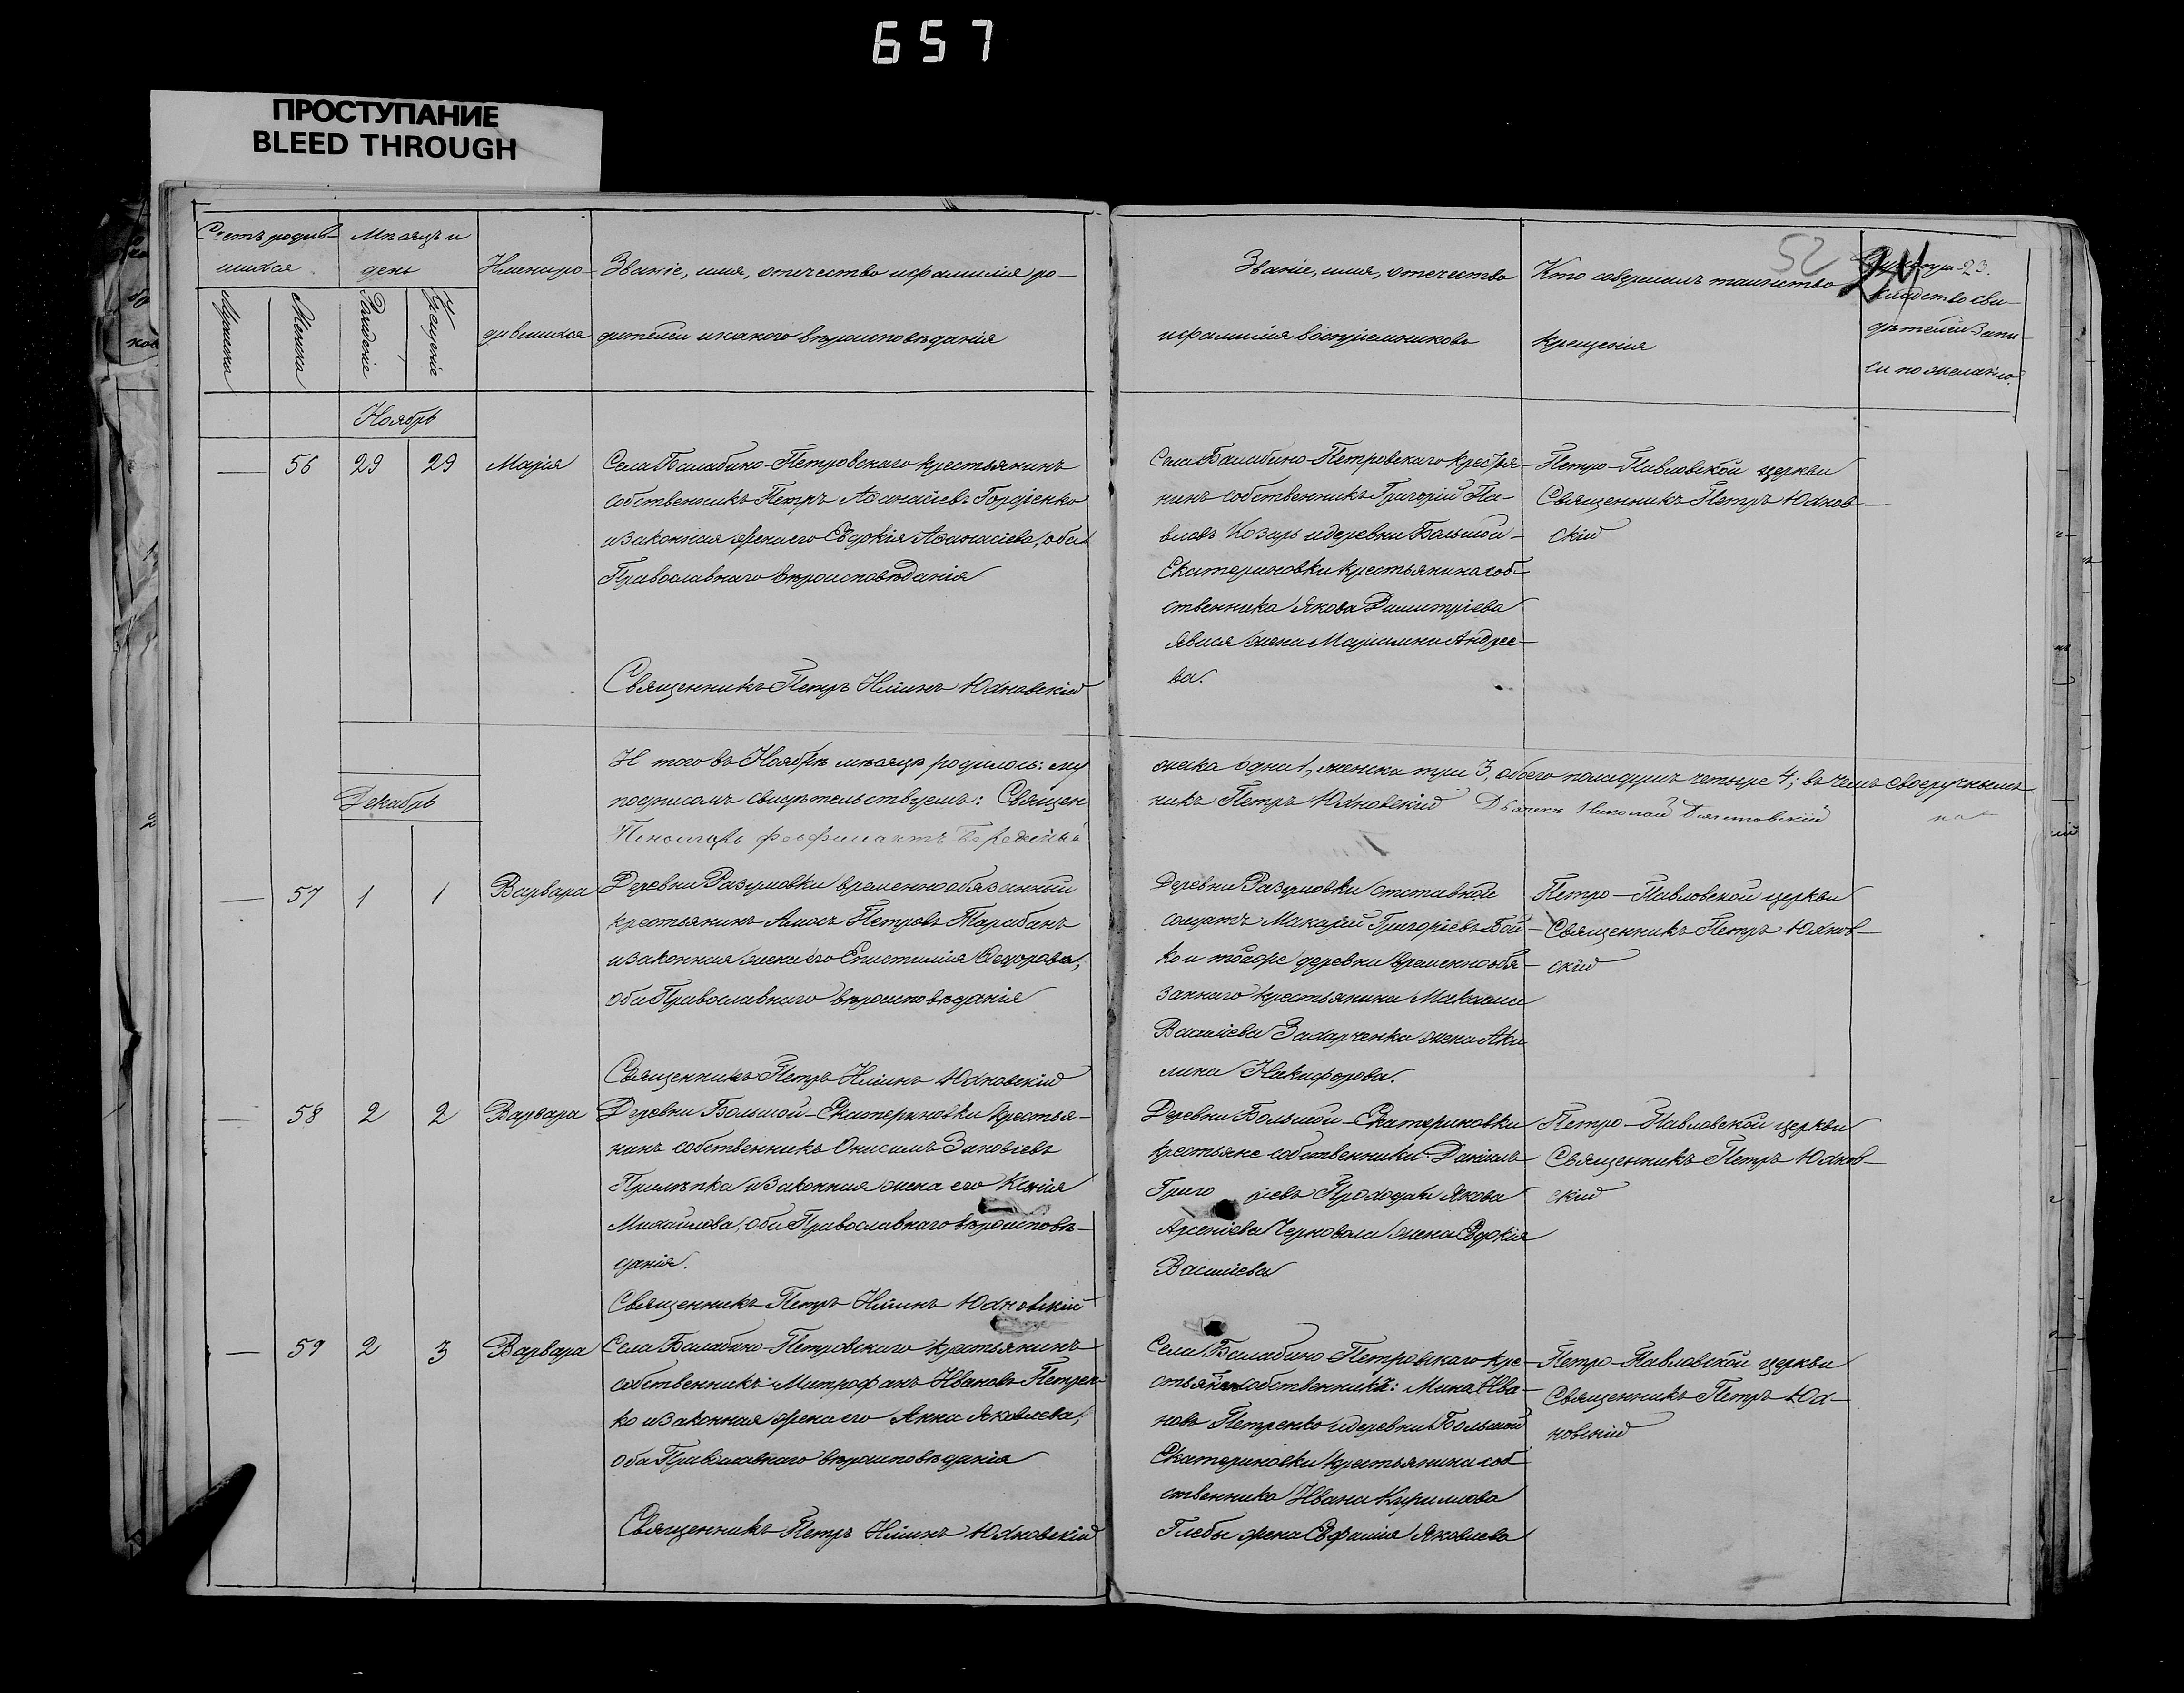 657
ПРОСТУПАНИЕ
BLEED THROUGH
Счетъ родив-
шихся
Мѣсяцъ и
день
Мужска
Женска
Рожденіе
Крещеніе
Имена ро-
дившихся
Званіе, имя, отечество и фамилія ро-
дителей и какого вѣроисповѣданія
Званіе, имя, отечество
и фамилія воспріемниковъ
Кто совершалъ таинство
крещенія
52
24
23.
свѣ-
дѣтелей запи-
си по желанію.
Ноябрь
— 56 29 29 Марія
Села Балабино-Петровскаго крестьянинъ
собственникъ Петръ Аѳанасіевъ Гордіенко
и законная жена его Евдокія Аѳанасіева, оба
Православнаго вѣроисповѣданія
Священникъ Петръ Іоаннъ Юхновскій
Села Балабино-Петровскаго крестья-
нинъ собственникъ Григорій Па-
вловъ Козарь и деревни Большой-
Екатериновки крестьянина соб-
ственника Якова Димитріева
жена Маріамна Андрее-
ва.
Петро-Павловской церкви
Священникъ Петръ Юхнов-
скій
Итого въ Ноябрѣ мѣсяцѣ родилось: му
жеска одна 1, женска три 3, обоего пола душъ четыре 4; въ чемъ своеручнымъ
Декабрь
подписомъ свидѣтельствуемъ: Священ
никъ Петръ Юхновскій Дьяченъ Николай
Пономарь
— 57 1 1 Варвара
Деревни Разумовки временнообязанный
крестьянинъ Амосъ Петровъ Тарабанъ
и законная жена его Епистимія Ѳедорова,
оба Православнаго вѣроисповѣданія
Священникъ Петръ Іоаннъ Юхновскій
Деревни Разумовки отставной
солдатъ Макарій Григоріевъ Бой-
ко и той же деревни временнообя-
заннаго крестьянина Максима
Василіева Захарченка жена Аки
лина Никифорова.
Петро-Павловской церкви
Священникъ Петръ Юхнов-
скій
— 58 2 2 Варвара
Деревни Большой-Екатериновки крестья-
нинъ собственникъ Онисимъ Зиновіевъ
Прилѣпка и законная жена его Ксенія
Михайлова, оба Православнаго вѣроисповѣ-
данія.
Священникъ Петръ Іоаннъ Юхновскій
Деревни Большой-Екатериновки
крестьяне собственники Даніилъ
Григо ріевъ Проходa и Якова
Арсеніева Черновола жена Евдокія
Василіева
Петро-Павловской церкви
Священникъ Петръ Юхнов-
скій
— 59 2 3 Варвара
Села Балабино-Петровскаго крестьянинъ
собственникъ Митрофанъ Ивановъ Петрен-
ко и законная жена его Анна Яковлева,
оба Православнаго вѣроисповѣданія
Священникъ Петръ Іоаннъ Юхновскій
Села Балабино Петровскаго кре-
стьянинъ собственникъ: Мина Ива-
новъ Петренко и деревни Большой
Екатериновки крестьянина соб-
ственника Ивана Кириллова
Глебы жена Евфимія Яковлева
Петро-Павловской церкви
Священникъ Петръ Юх-
новскій